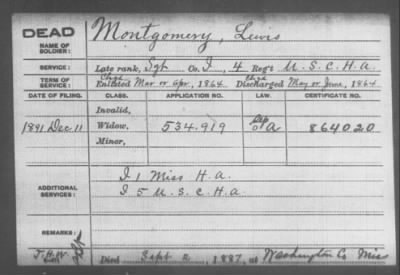 DEAD
NAME OF SOLDIER:
Montgomery, Lewis
SERVICE:
Late rank, Sgt Co. I, 4 Reg't U.S.C.H.A.
TERM OF SERVICE:
Enlisted Mar or Apr, 1864 Discharged May or June, 1864
DATE OF FILING. CLASS. APPLICATION NO. LAW. CERTIFICATE NO.
Invalid,
1891 Dec 11 Widow, 534.919 A 864020
Minor,
ADDITIONAL SERVICES:
I 1 Miss H.A.
I 5 U.S.C.H.A.
REMARKS:
Died Sept 2, 1887, at Washington Co Miss